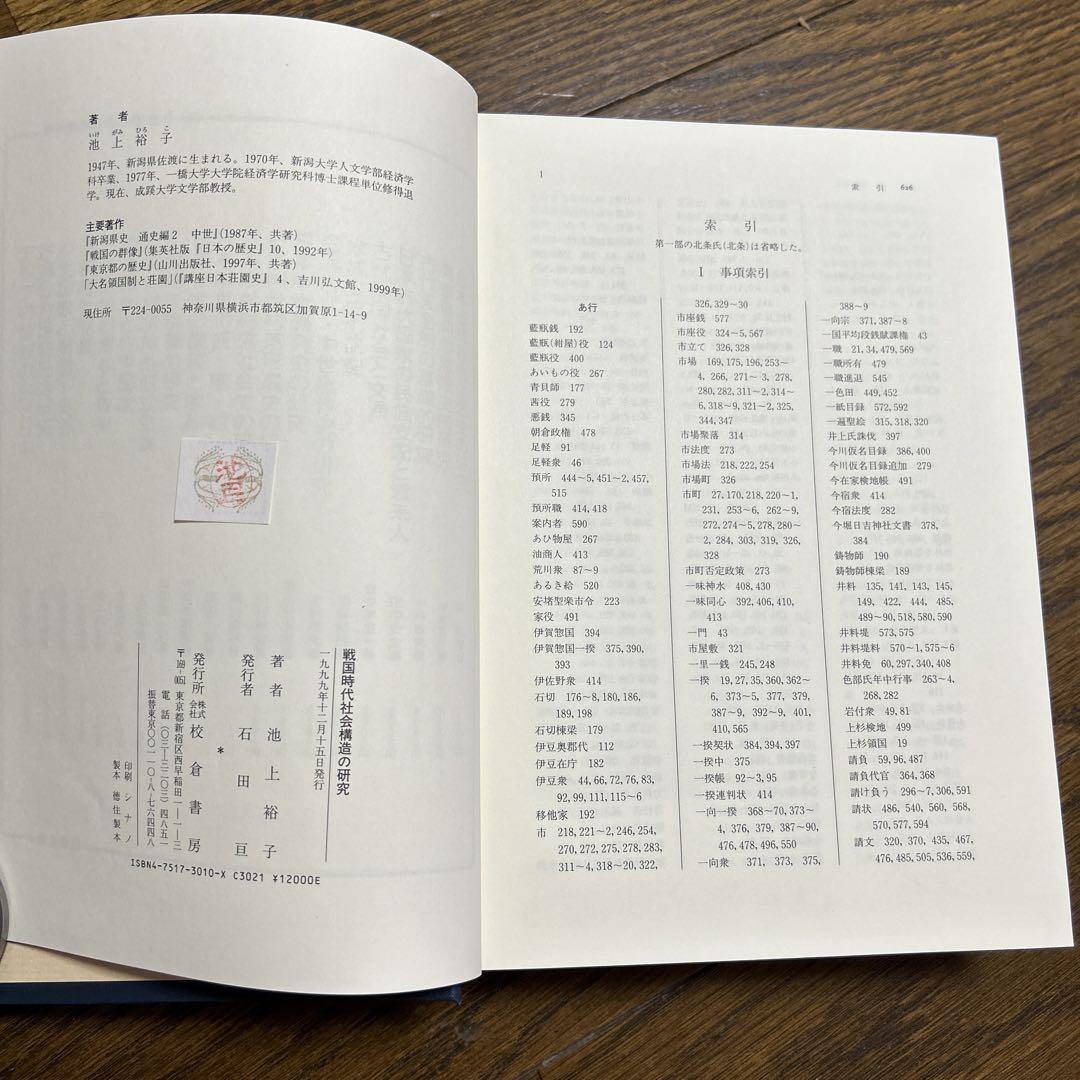 著者
いけ がみ ひろ こ
池上裕子
1947年、新潟県佐渡に生まれる。1970年、新潟大学人文学部経済学
科卒業、1977年、一橋大学大学院経済学研究科博士課程単位修得退
学。現在、成蹊大学文学部教授。
主要著作
『新潟県史 通史編2 中世』(1987年、共著)
『戦国の群像』(集英社版『日本の歴史』10、1992年)
『東京都の歴史』(山川出版社、1997年、共著)
「大名領国制と荘園」(『講座日本荘園史』4、吉川弘文館、1999年)
現住所 〒224-0055 神奈川県横浜市都筑区加賀原1-14-9
戦国時代社会構造の研究
一九九九年十二月十五日発行
著者 池上裕子
発行者 石田亘
*
発行所 株式会社 校倉書房
〒169-0051 東京都新宿区西早稲田一-一-三
電話(〇三-三二〇三)四八五一
振替東京〇〇一一〇-八-七六四四八
印刷 シナノ
製本 徳住製本
ISBN4-7517-3010-X C3021 ¥12000E
1
索引 626
索引
第一部の北条氏(北条)は省略した。
I 事項索引
あ行
藍瓶銭 192
藍瓶(紺屋)役 124
藍瓶役 400
あいもの役 267
青貝師 177
茜役 279
悪銭 345
朝倉政権 478
足軽 91
足軽衆 46
預所 444~5, 451~2, 457,
515
預所職 414, 418
案内者 590
あひ物屋 267
油商人 413
荒川衆 87~9
あるき給 520
安堵型楽市令 223
家役 491
伊賀惣国 394
伊賀惣国一揆 375, 390,
393
伊佐野衆 414
石切 176~8, 180, 186,
189, 198
石切棟梁 179
伊豆奥郡代 112
伊豆在庁 182
伊豆衆 44, 66, 72, 76, 83,
92, 99, 111, 115~6
移他家 192
市 218, 221~2, 246, 254,
270, 272, 275, 278, 283,
311~4, 318~20, 322,
326, 329~30
市座銭 577
市座役 324~5, 567
市立て 326, 328
市場 169, 175, 196, 253~
4, 266, 271~3, 278,
280, 282, 311~2, 314~
6, 318~9, 321~2, 325,
344, 347
市場聚落 314
市法度 273
市場法 218, 222, 254
市場町 326
市町 27, 170, 218, 220~1,
231, 253~6, 262~9,
272, 274~5, 278, 280~
2, 284, 303, 319, 326,
328
市町否定政策 273
一味神水 408, 430
一味同心 392, 406, 410,
413
一門 43
市屋敷 321
一里一銭 245, 248
一揆 19, 27, 35, 360, 362~
6, 373~5, 377, 379,
387~9, 392~9, 401,
410, 565
一揆契状 384, 394, 397
一揆中 375
一揆帳 92~3, 95
一揆連判状 414
一向一揆 368~70, 373~
4, 376, 379, 387~90,
476, 478, 496, 550
一向衆 371, 373, 375,
388~9
一向宗 371, 387~8
一国平均段銭賦課権 43
一職 21, 34, 479, 569
一職所有 479
一職進退 545
一色田 449, 452
一紙目録 572, 592
一遍聖絵 315, 318, 320
井上氏誅伐 397
今川仮名目録 386, 400
今川仮名目録追加 279
今在家検地帳 491
今宿衆 414
今宿法度 282
今堀日吉神社文書 378,
384
鋳物師 190
鋳物師棟梁 189
井料 135, 141, 143, 145,
149, 422, 444, 485,
489~90, 518, 580, 590
井料堤 573, 575
井料堤料 570~1, 575~6
井料免 60, 297, 340, 408
色部氏年中行事 263~4,
268, 282
岩付衆 49, 81
上杉検地 499
上杉領国 19
請負 59, 96, 487
請負代官 364, 368
請け負う 296~7, 306, 591
請状 486, 540, 560, 568,
570, 577, 594
請文 320, 370, 435, 467,
476, 485, 505, 536, 559,